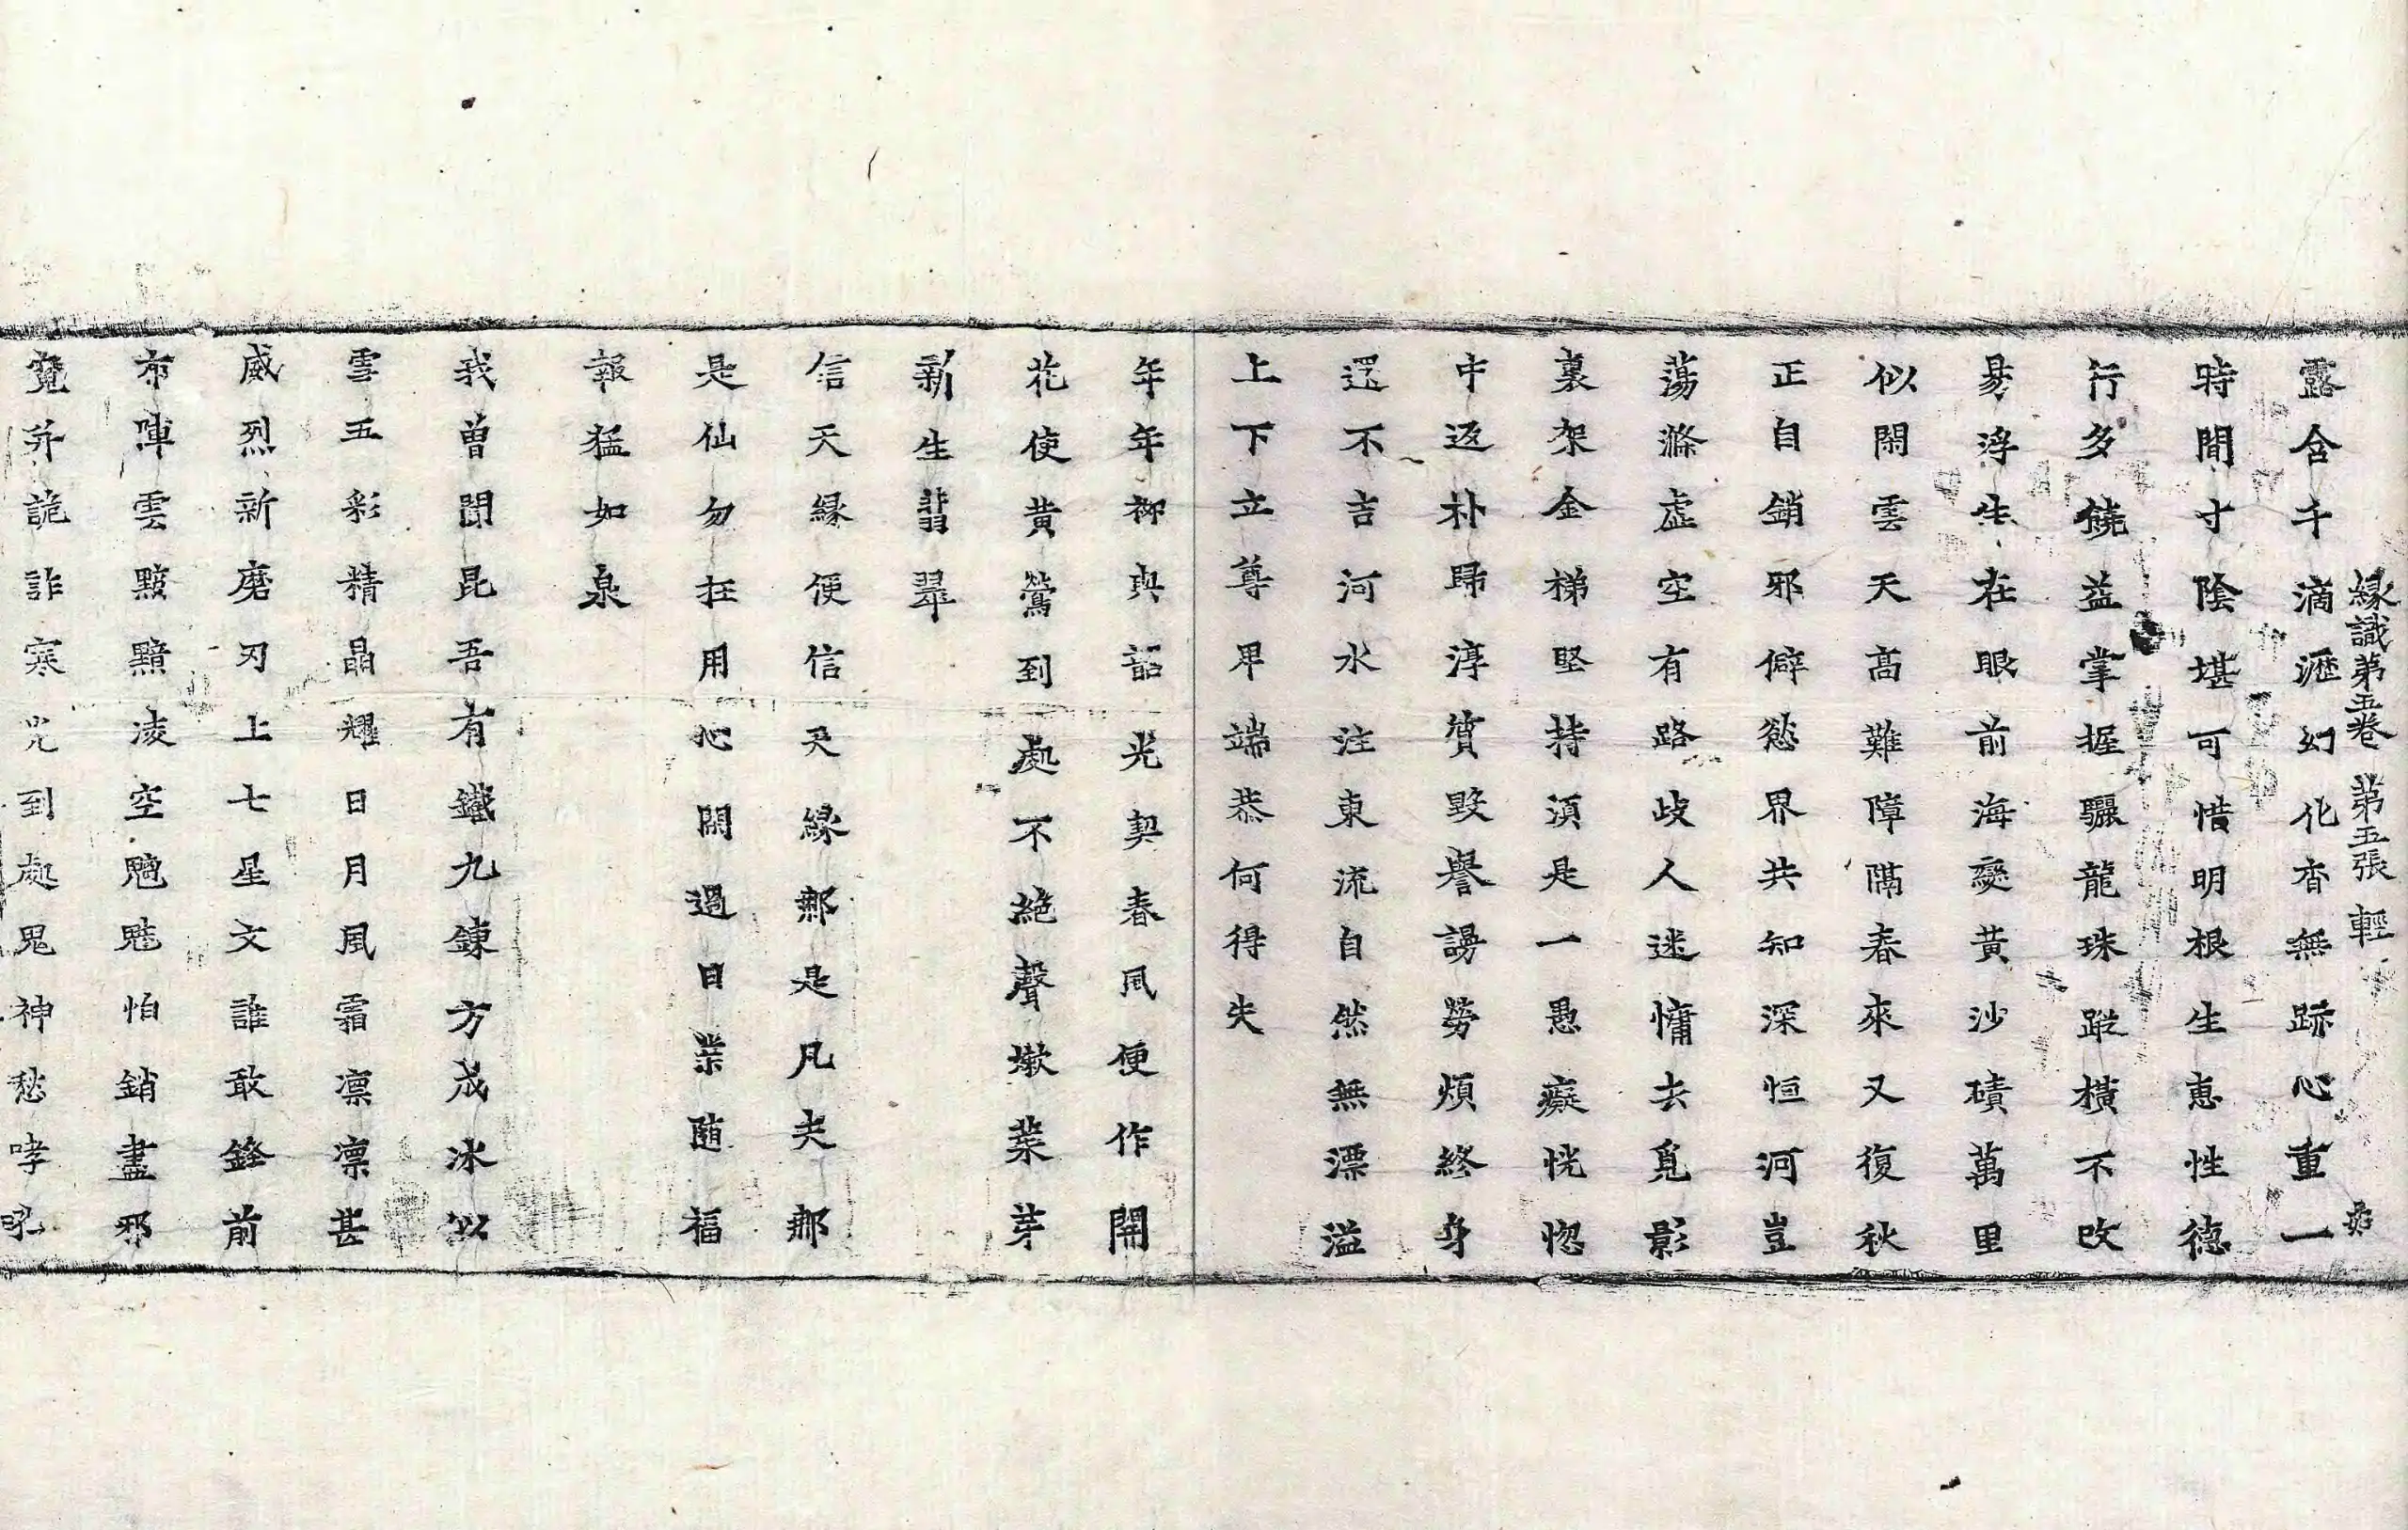 縁識第五卷 第五張 輕
露含千滴瀝幻化杳無跡心重一
時間寸陰堪可惜明根生恵性德
行多饒益掌握驪龍珠蹤橫不改
易浮生在眼前海變黃沙磧萬里
似閑雲天高難障隔春來又復秋
正自銷邪僻慾界共知深恒河豈
蕩滌虛空有路歧人迷慵去覓影
裏架金梯堅持湏是一愚癡恍惚
中返朴歸淳質毀譽謗勞煩終身
還不吉河水注東流自然無漂溢
上下立尊卑端恭何得失
年年柳與韶光契春風便作開
花使黃鶯到處不絕聲嫰蘂芽
新生翡翠
信天緣便信天緣那是凡夫那
是仙勿抂用心閑過日業随福
報猛如泉
我曾聞昆吾有鐵九鍊方成冰似
雪五彩精晶耀日月風霜凛凛甚
威烈新磨刃上七星文誰敢鋒前
布陣雲黕黯凌空魑魅怕銷盡邪
寃并詭詐寒光到處鬼神愁哮吼